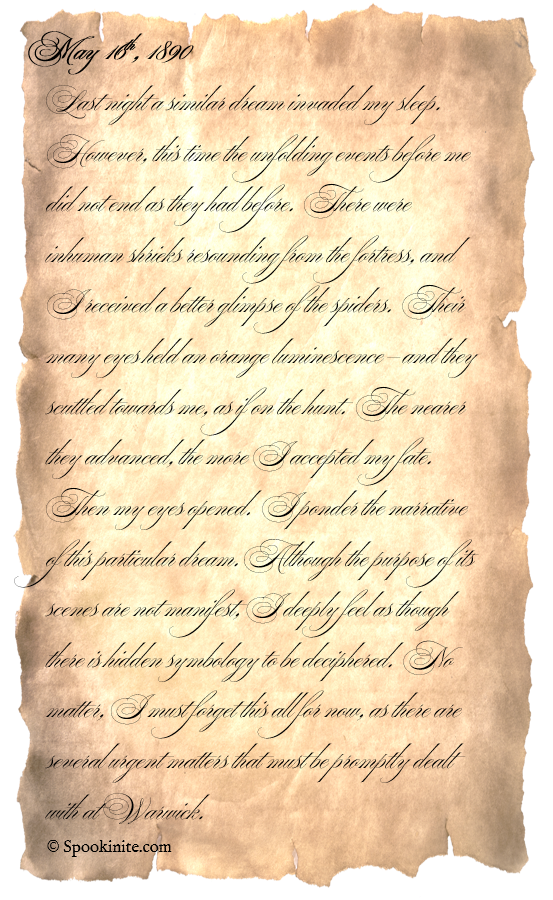 May 16th, 1890
Last night a similar dream invaded my sleep.
However, this time the unfolding events before me
did not end as they had before. There were
inhuman shrieks resounding from the fortress, and
I received a better glimpse of the spiders. Their
many eyes held an orange luminescence—and they
scuttled towards me, as if on the hunt. The nearer
they advanced, the more I accepted my fate.
Then my eyes opened. I ponder the narrative
of this particular dream. Although the purpose of its
scenes are not manifest, I deeply feel as though
there is hidden symbology to be deciphered. No
matter, I must forget this all for now, as there are
several urgent matters that must be promptly dealt
with at Warwick.
© Spookinite.com